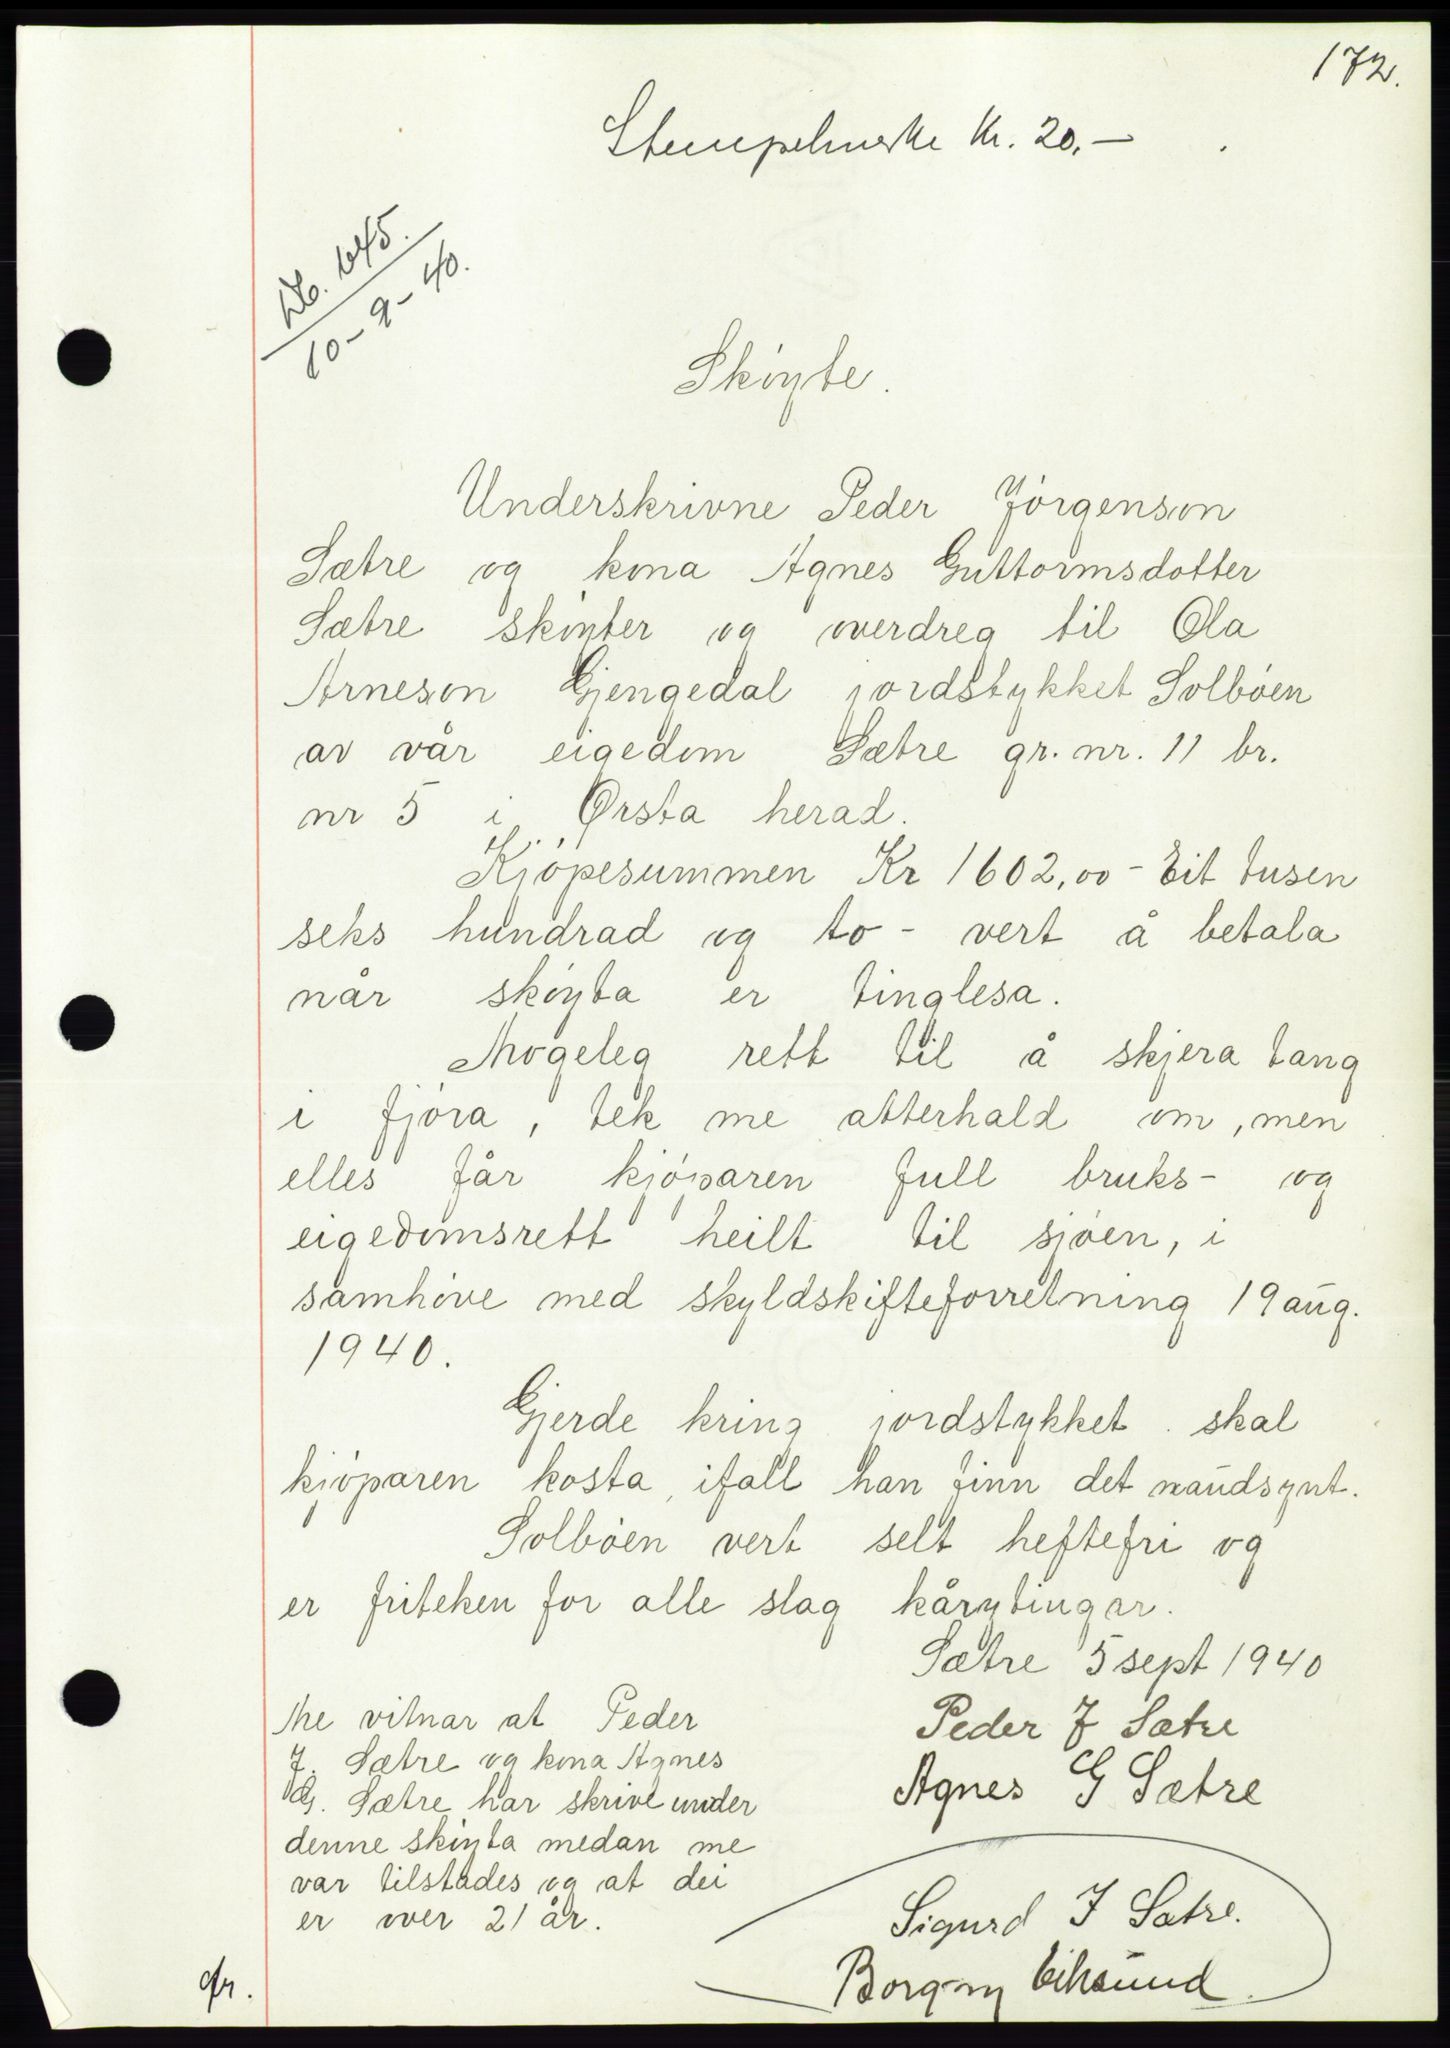 172.
Stempelmerke Kr. 20.-
Db. 645.
10-9-40.
Sköyte.
Underskrivne Peder Jörgenson
Sætre og kona Agnes Guttormsdotter
Sætre sköyter og overdreg til Ola
Arneson Gjengedal jordstykket Solböen
av vår eigedom Sætre gr. nr. 11 br.
nr 5 i Ørsta herad.
Kjöpesummen Kr 1602,00 - Eit tusen
seks hundrad og to - vert å betala
når sköyta er tinglesa.
Mogeleg rett til å skjera tang
i fjöra, tek me atterhald om, men
elles får kjöparen full bruks- og
eigedomsrett heilt til sjöen, i
samhöve med skyldskifteforretning 19 aug.
1940.
Gjerde kring jordstykket skal
kjöparen kosta, ifall han finn det naudsynt.
Solböen vert selt heftefri og
er friteken for alle slag kårytingar.
Sætre 5 sept 1940
Peder J Sætre
Agnes G Sætre
Me vitnar at Peder
J. Sætre og kona Agnes
G. Sætre har skrive under
denne sköyta medan me
var tilstades og at dei
er over 21 år.
Sigurd J Sætre.
Borgny Eiksund